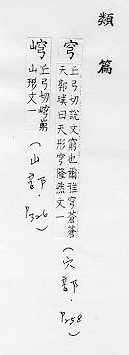 類篇
穹
丘弓切說文窮也爾雅穹蒼蒼
天郭璞曰天形穹隆然文一
(穴部.P258)
嵪
丘弓切嵪崩
山形文一
(山部.P326)